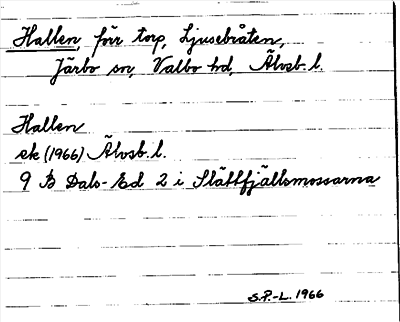 Hallen, förr torp, Ljusebråten,
Järbo sn, Valbo hd, Älvsb. l.
Hallen
ek (1966) Älvsb. l.
9 B Dals-Ed 2 i Slättfjällsmossarna
S.P.-L. 1966